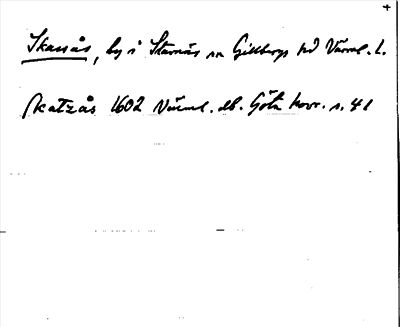 Skasås, by i Stavnäs sn Gillbergs hd Värml. l.
Skatzås 1602 Värml. äb. Göta hovr. s. 41